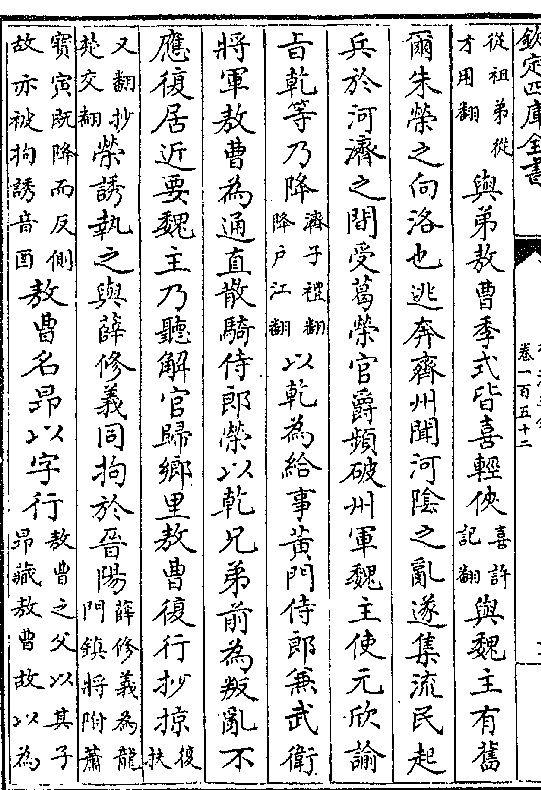 欽定四庫全書
卷一百五十二
從祖弟從才用翻與弟敖曹季式皆喜輕俠喜許記翻與魏主有舊
爾朱榮之向洛也逃奔齊州聞河陰之亂遂集流民起
兵於河濟之間受葛榮官爵頻破州軍魏主使元欣諭
㫖乾等乃降濟子禮翻降戶江翻以乾為給事黃門侍郎兼武衛
將軍敖曹為通直散騎侍郎榮以乾兄弟前為叛亂不
應復居近要魏主乃聽解官歸鄉里敖曹復行抄掠復扶
又翻抄楚交翻榮誘執之與薛修義同拘於晉陽薛修義為龍門鎮將附蕭
寶寅既降而反側故亦被拘誘音酉敖曹名昂以字行敖曹之父以其子昂藏敖曹故以為